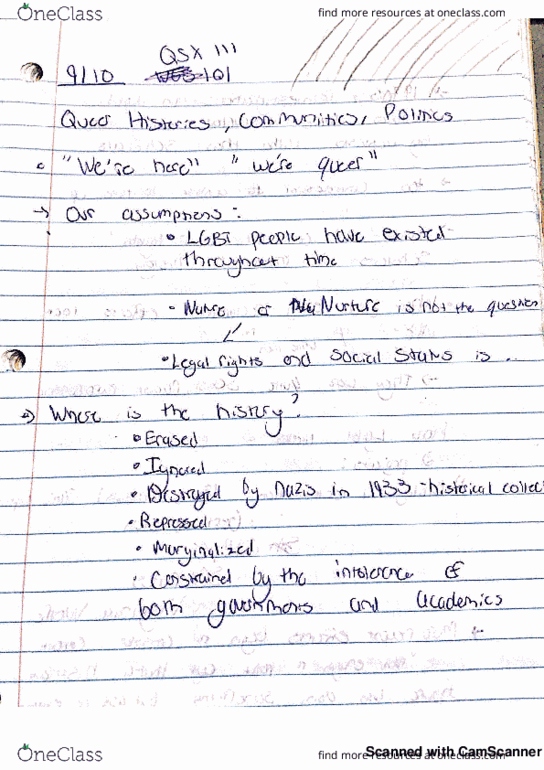 OneClass
find more resources at oneclass.com
QSX 111
9/10 101
Queer Histories, Communities, Politics
"We're here" "we're queer"
→ Our assumptions:
• LGBT people have existed
throughout time
• Nature or Nurture is not the question
• Legal rights and social status is ..
→ Where is the history?
• Erased
• Ignored
• Destroyed by Nazis in 1933 - historical collec
• Repressed
• Marginalized
• Constrained by the intolerence of
both governments and academics
OneClass
find more resources at oneclass.com
Scanned with CamScanner